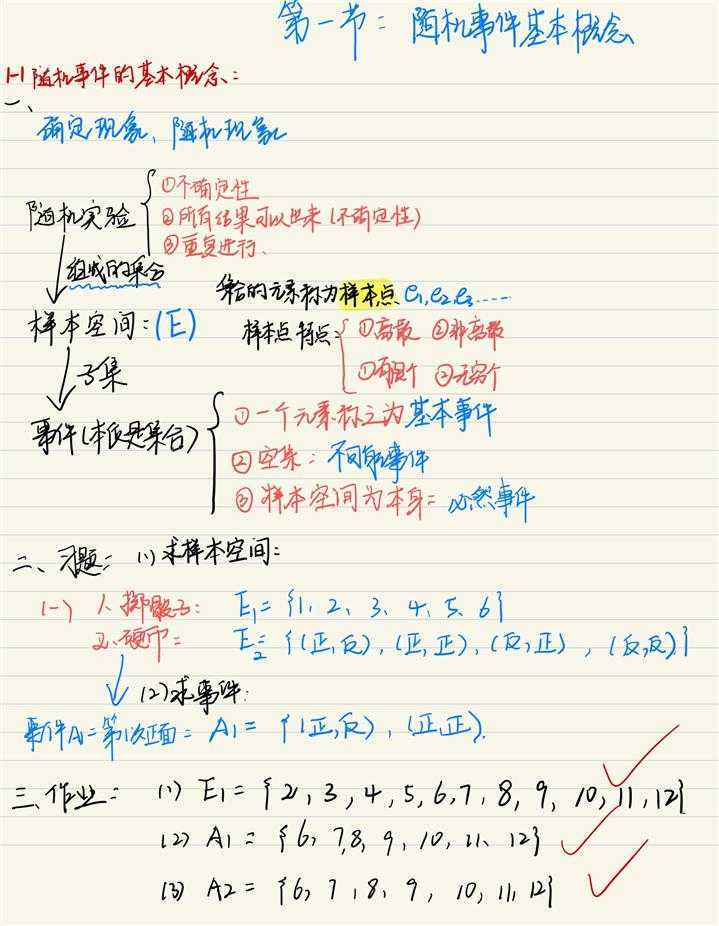 第一节：随机事件基本概念
1-1 随机事件的基本概念：
一、
确定现象、随机现象
随机实验
①不确定性
②所有结果可以出来（不确定性）
③重复进行、
组成的集合
集合的元素称为样本点 e1,e2,e3.....
样本空间：(E)
样本点特点：①离散 ②非离散
①有限个 ②无穷个
子集
事件(本质是集合)
①一个元素称之为基本事件
②空集：不可能事件
③样本空间为本身= 必然事件
二、习题： (1)求样本空间：
(一) 1、掷骰子： E1= {1、2、3、4、5、6}
2、硬币= E2= {(正,反),(正,正),(反,正),(反,反)}
(2)求事件：
事件A1=第1次正面= A1= {(正,反),(正,正).
三、作业： (1) E1= {2,3,4,5,6,7,8,9,10,11,12}
(2) A1= {6,7,8,9,10,11、12}
(3) A2= {6,7,8,9,10,11,12}